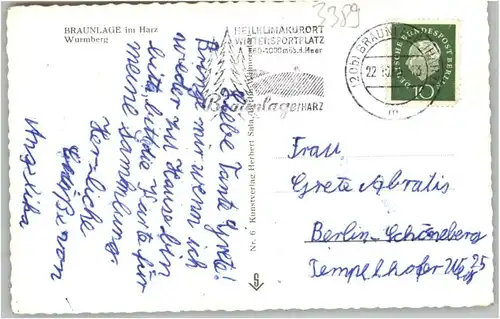 BRAUNLAGE im Harz
Wurmberg
3389
HEILKLIMAKURORT
WINTERSPORTPLATZ
600-1000m ü.d.Meer
Braunlage/HARZ
(20b) BRAUN
22
m
DEUTSCHE BUNDESPOST BERLIN
10
Liebe Tante Grete!
Bringe mir wenn ich
wieder zu Hause bin
bitte die Karte für
meine Sammlung
Herzliche
Grüße von
Angelika
Nr. 6 Kunstverlag Herbert Sala, Berlin
S
Frau,
Grete Abratis
Berlin-Schöneberg
Tempelhofer Weg 25